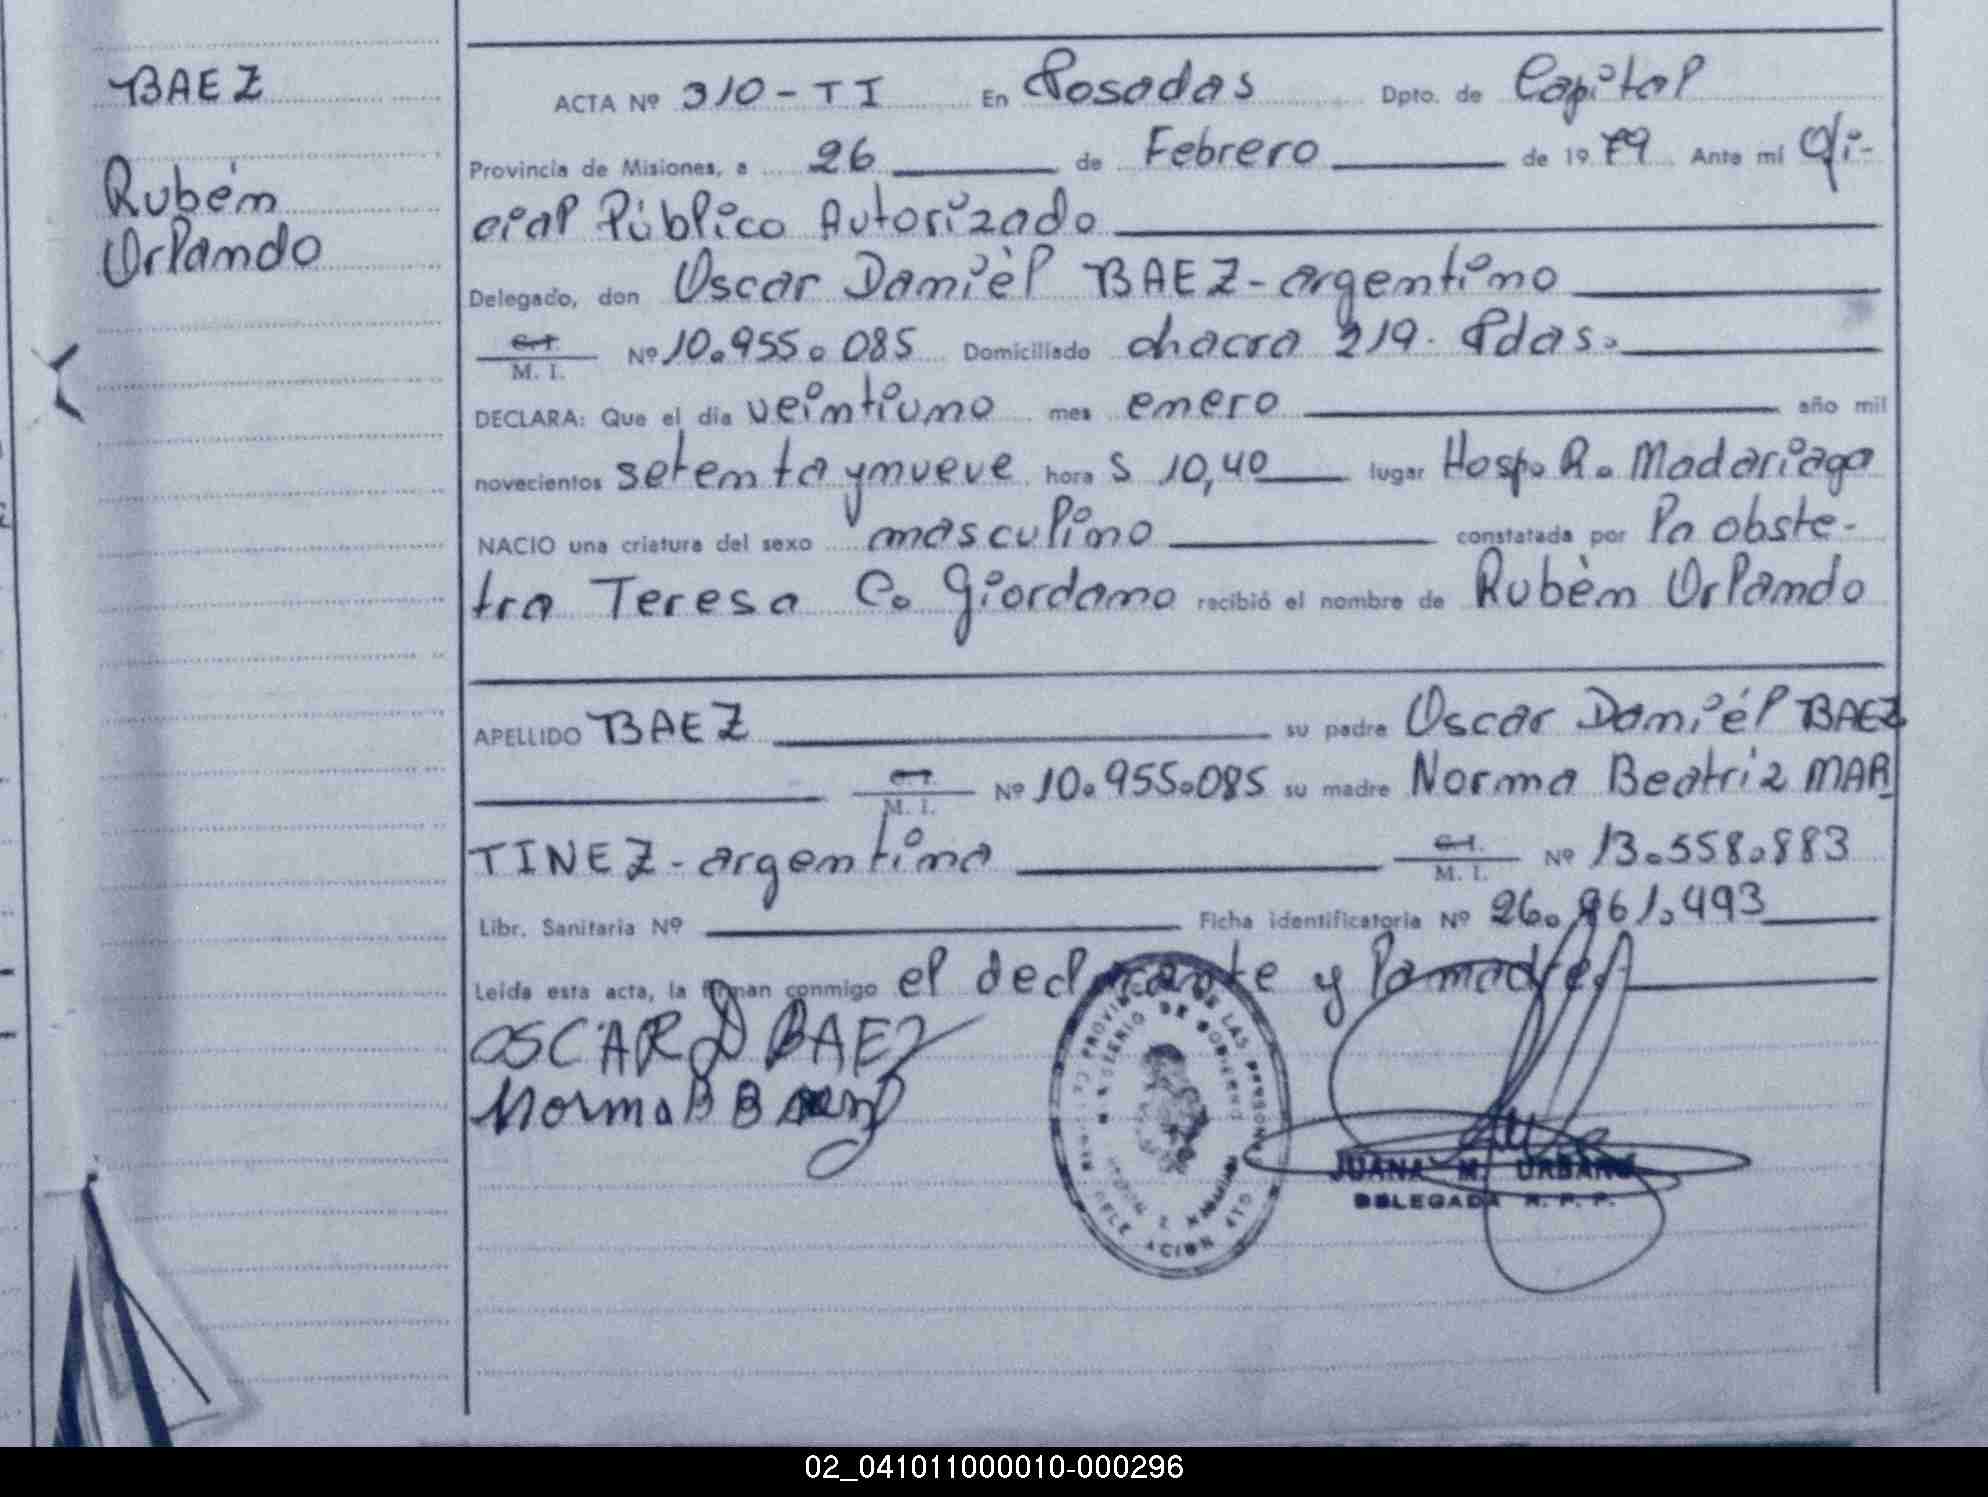 BAEZ
Rubén
Orlando
ACTA Nº 310-TI En Posadas Dpto. de Capital
Provincia de Misiones, a 26 de Febrero de 1979 Ante mí Ofi-
cial Público Autorizado
Delegado, don Oscar Danièl BAEZ-argentino
C.I.
M. I. Nº 10.955.085 Domiciliado chacra 219. Pdas.
DECLARA: Que el día veintiuno mes enero año mil
novecientos setenta y nueve hora s 10,40 lugar Hosp. R. Madariaga
NACIO una criatura del sexo masculino constatada por la obste-
tra Teresa C. Giordano recibió el nombre de Rubèn Orlando
APELLIDO BAEZ su padre Oscar Daniél BAEZ
C.I.
M. I. Nº 10.955.085 su madre Norma Beatriz MAR
TINEZ-argentina C.I. M. I. Nº 13.558.883
Libr. Sanitaria Nº Ficha identificatoria Nº 26.961.493
Leída esta acta, la firman conmigo el declarante y la madre.
OSCAR D BAEZ
Norma B B
JUANA M. URBANO
DELEGADA R. P. P.
02_041011000010-000296